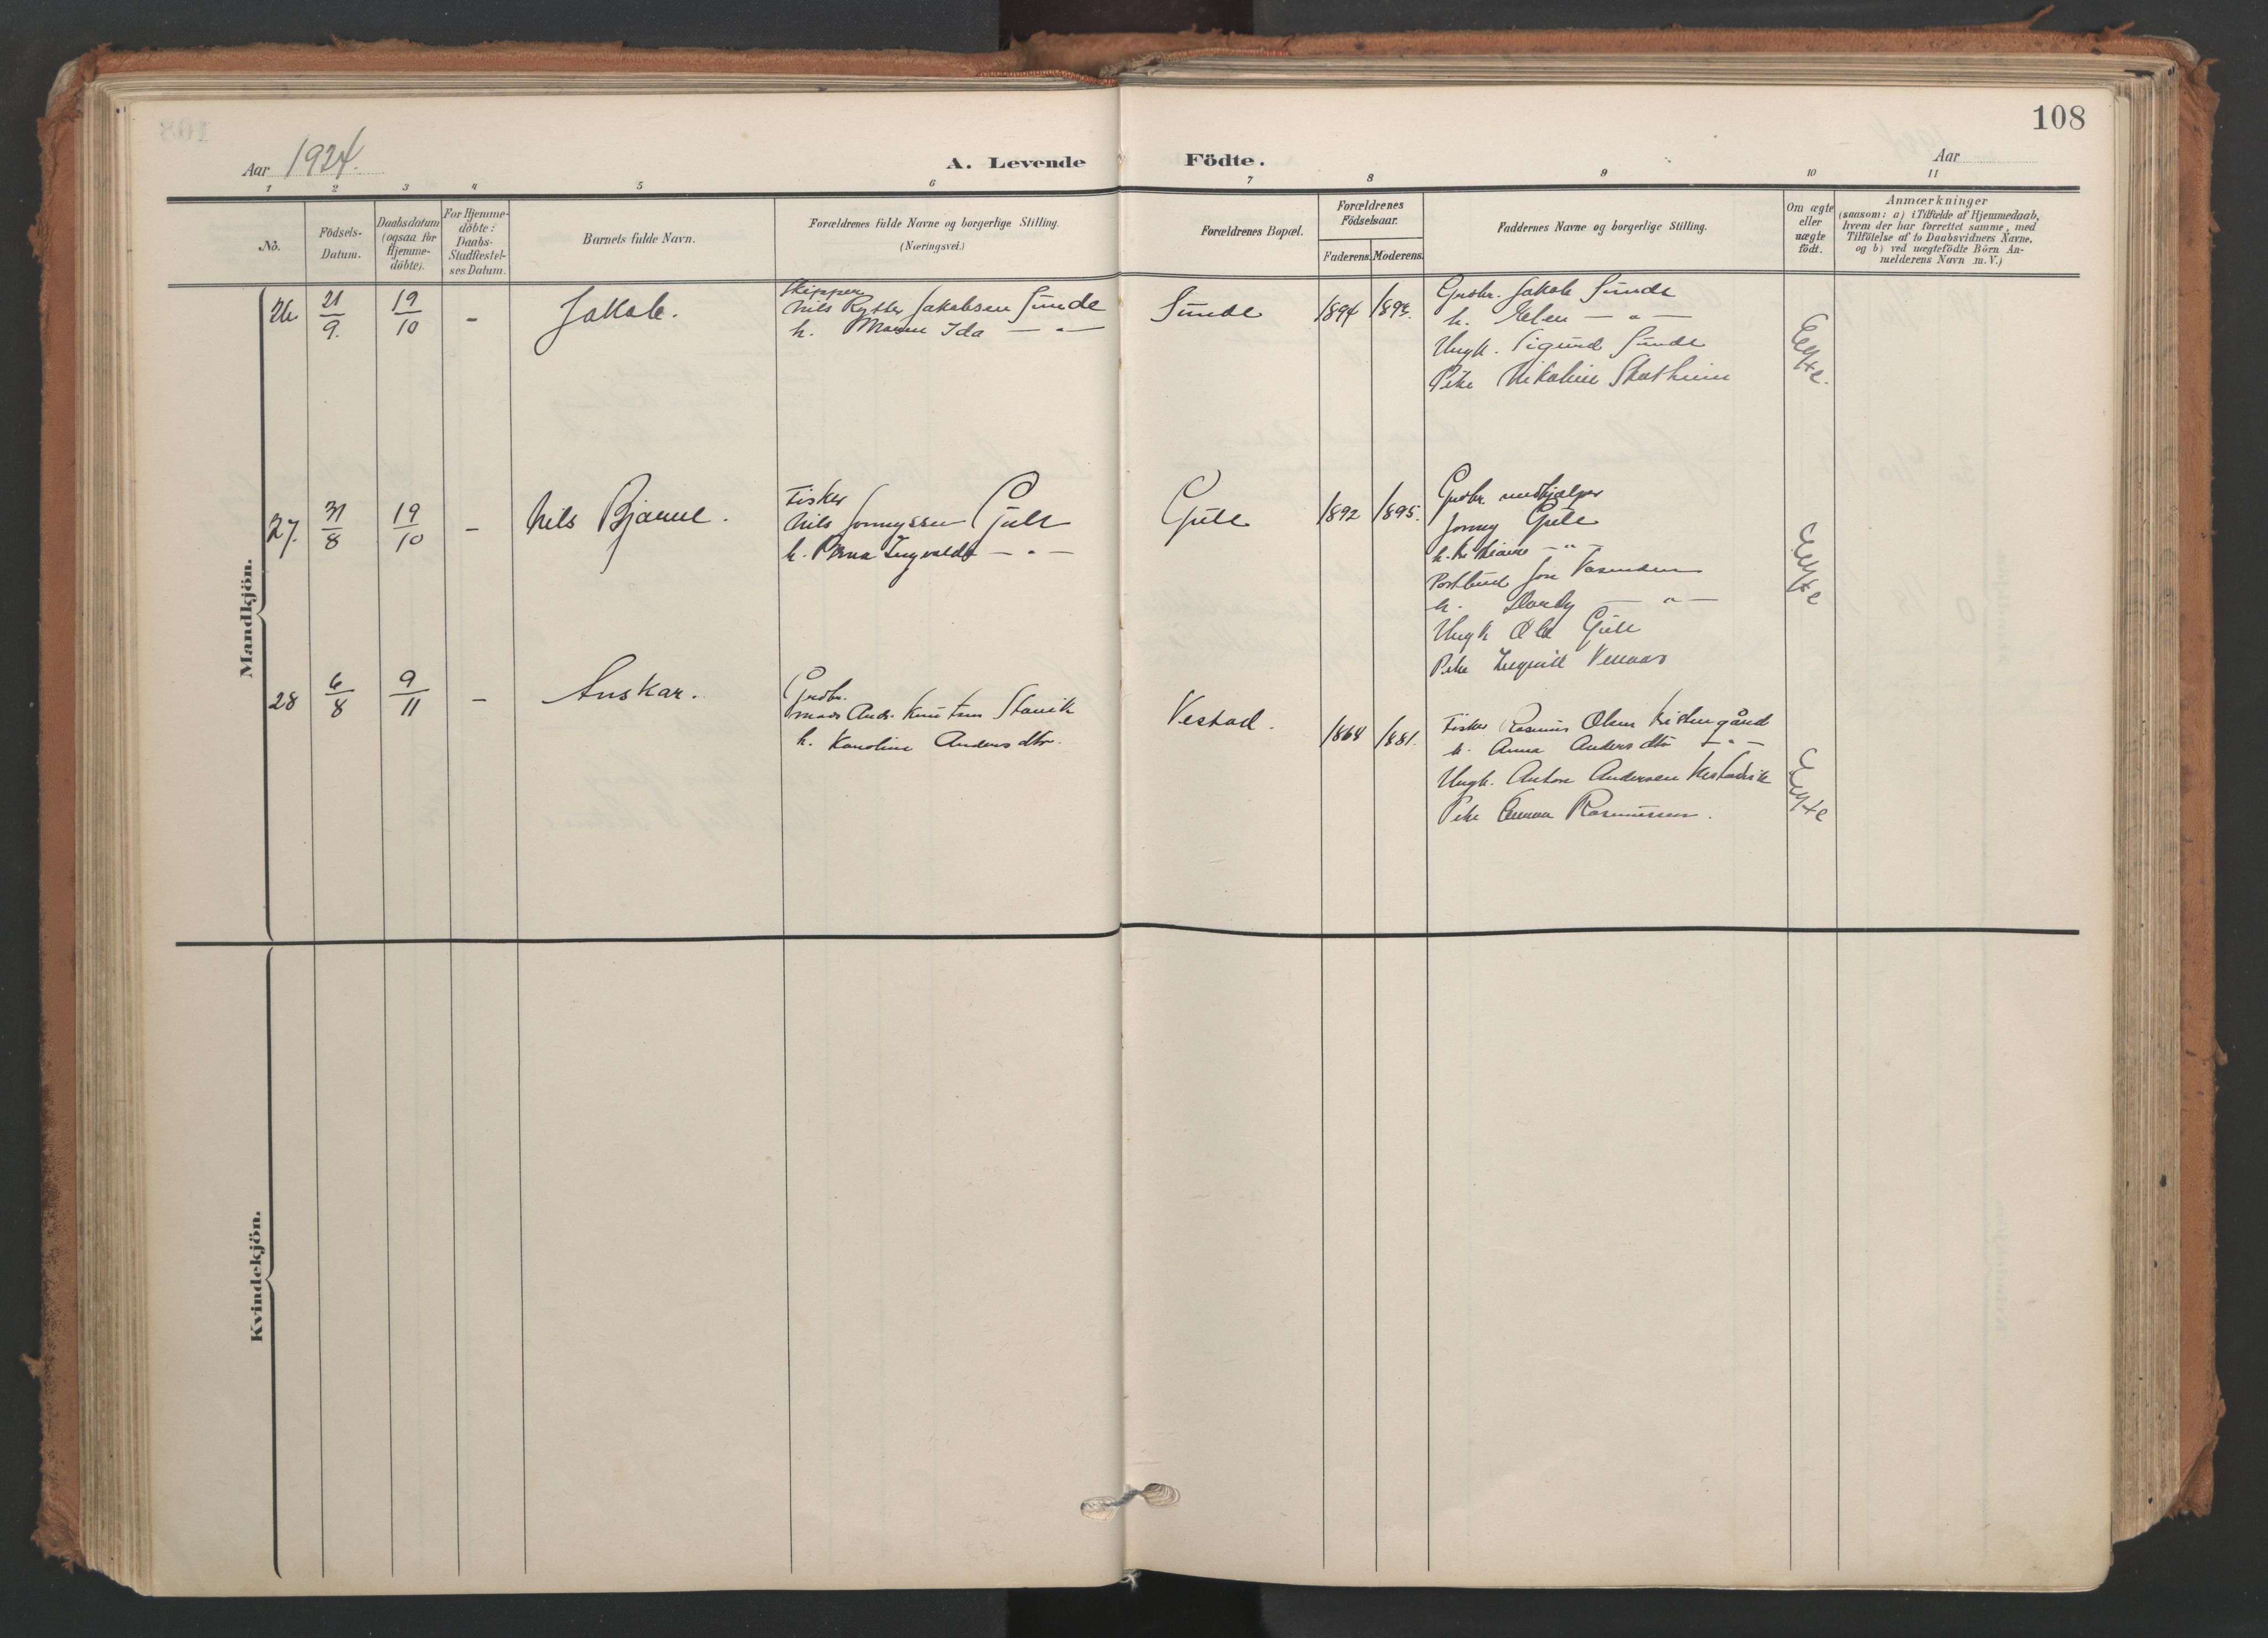 108
Aar 1924.
A. Levende Födte.
Aar
1 2 3 4 5 6 7 8 9 10 11
No.
Födsels-
Datum.
Daabsdatum
(ogsaa for
Hjemme-
döbte).
For Hjemme-
döbte:
Daabs-
Stadfæstel-
ses Datum.
Barnets fulde Navn.
Forældrenes fulde Navne og borgerlige Stilling.
(Næringsvei.)
Forældrenes Bopæl.
Forældrenes
Födselsaar.
Faderens. Moderens.
Faddernes Navne og borgerlige Stilling.
Om ægte
eller
uægte
födt.
Anmærkninger
(saasom: a) i Tilfælde af Hjemmedaab,
hvem der har forrettet samme, med
Tilföielse af to Daabsvidners Navne,
og b) ved uægtefödte Börn An-
melderens Navn m. V.)
Mandkjön.
26. 21/9. 19/10 - Jakob.
Skipper
Nils Rytter Jakobsen Sunde
h. Maren Ida — " —
Sunde 1894 1893.
Grdbr. Jakob Sunde
h. Elen — " —
Ungk. Sigurd Sunde
Pike Nikoline Skotheim
Ægte.
27. 31/8 19/10 - Nils Bjarne.
Fisker
Nils Jonnyssen Gule
h. Ingvalda — " —
Gule 1892 1895.
Grdbr. medhjælper
Jonny Gule
h. — " —
Postbud Jon
h. — " —
Ungk Ole Gule
Pike
Ægte
28 6/8 9/11 - Anskar.
Grdbr.
Mads Andr. Knutsen Stavik
h. Karoline Andersdtr.
Vestad. 1864 1881.
Fisker Rasmus Olsen
h. Anna Andersdtr — " —
Ungk. Anton Andersen
Pike Rasmussen.
Ægte
Kvindekjön.